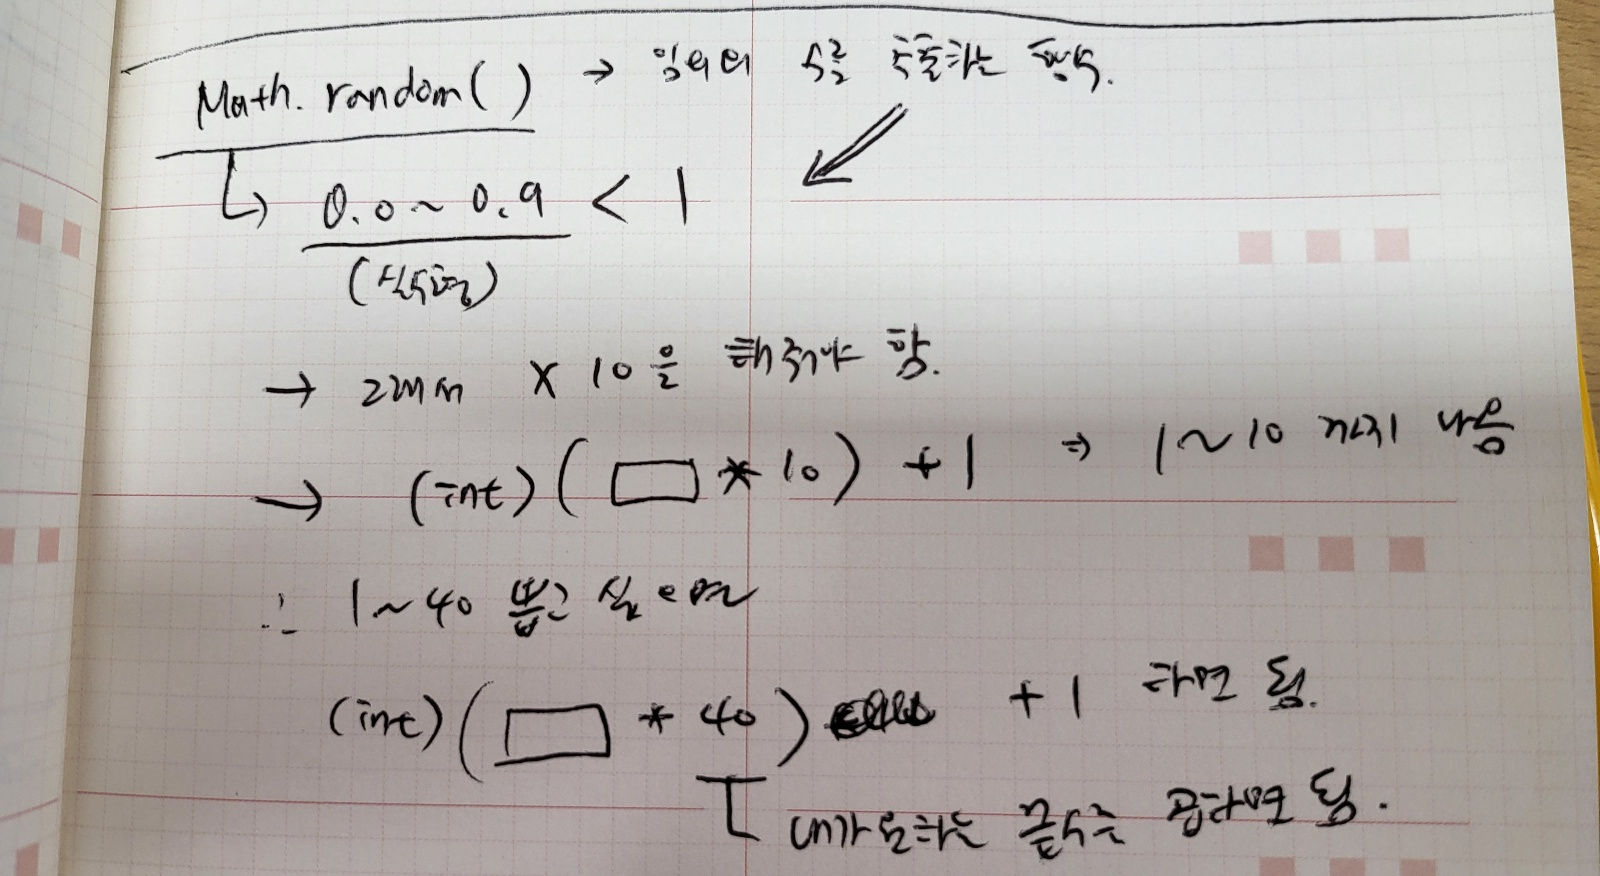 Math. random() → 임의의 수를 추출하는 함수.
↳ 0.0 ~ 0.9 < 1
(실수형)
→ 그래서 × 10 을 해줘야 함.
→ (int) ( □ * 10 ) + 1 ⇒ 1 ~ 10 까지 나옴
∴ 1 ~ 40 뽑고 싶으면
(int) ( □ * 40 ) + 1 하면 됨.
내가 원하는 끝수를 곱하면 됨.